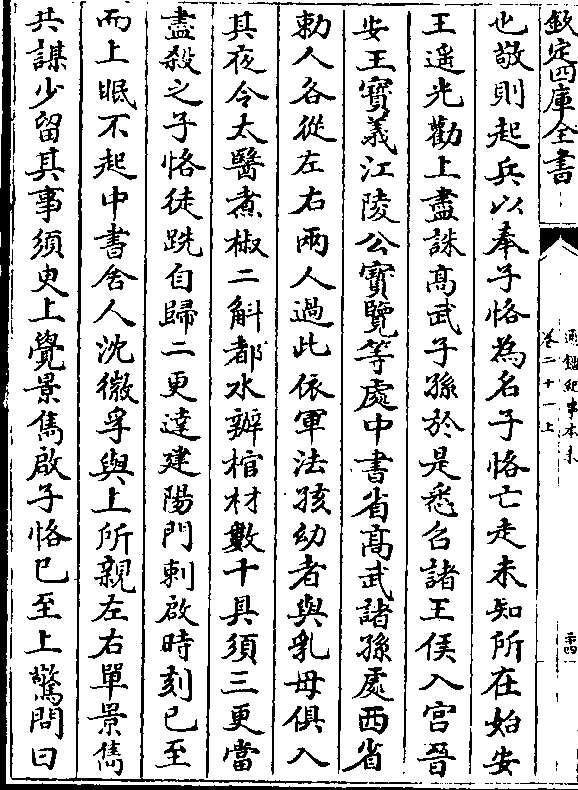 欽定四庫全書
通鑑紀事本末
卷二十一上
也敬則起兵以奉子恪為名子恪亡走未知所在始安
王遥光勸上盡誅髙武子孫於是悉召諸王侯入宫晉
安王寳義江陵公寳覽等處中書省髙武諸孫處西省
勅人各從左右兩人過此依軍法孩幼者與乳母俱入
其夜令太醫煮椒二斛都水辦棺材數十具須三更當
盡殺之子恪徒跣自歸二更達建陽門刺啟時刻已至
而上眠不起中書舍人沈徽孚與上所親左右單景雋
共謀少留其事須臾上覺景雋啟子恪已至上驚問曰